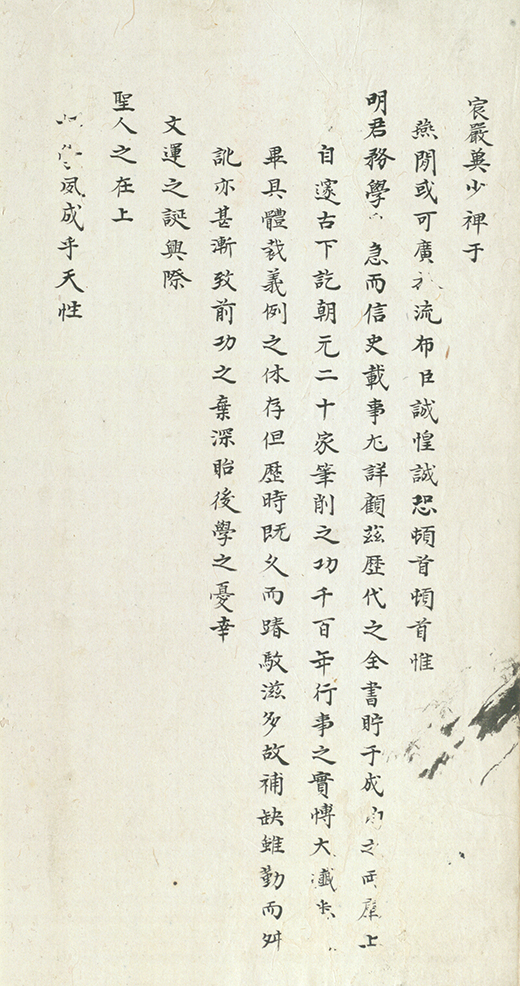 宸嚴冀少裨于
燕閒或可廣 流布臣誠惶誠恐頓首頓首惟
明君務學 急而信史載事尤詳顧玆歷代之全書貯于成 之兩 上
自邃古下訖朝元二十家筆削之功千百年行事之實愽大 
畢具體裁義例之俱存但歷時旣久而踳駁滋多故補缺雖勤而舛
訛亦甚漸致前功之棄深貽後學之憂幸
文運之誕興際
聖人之在上
夙成乎天性